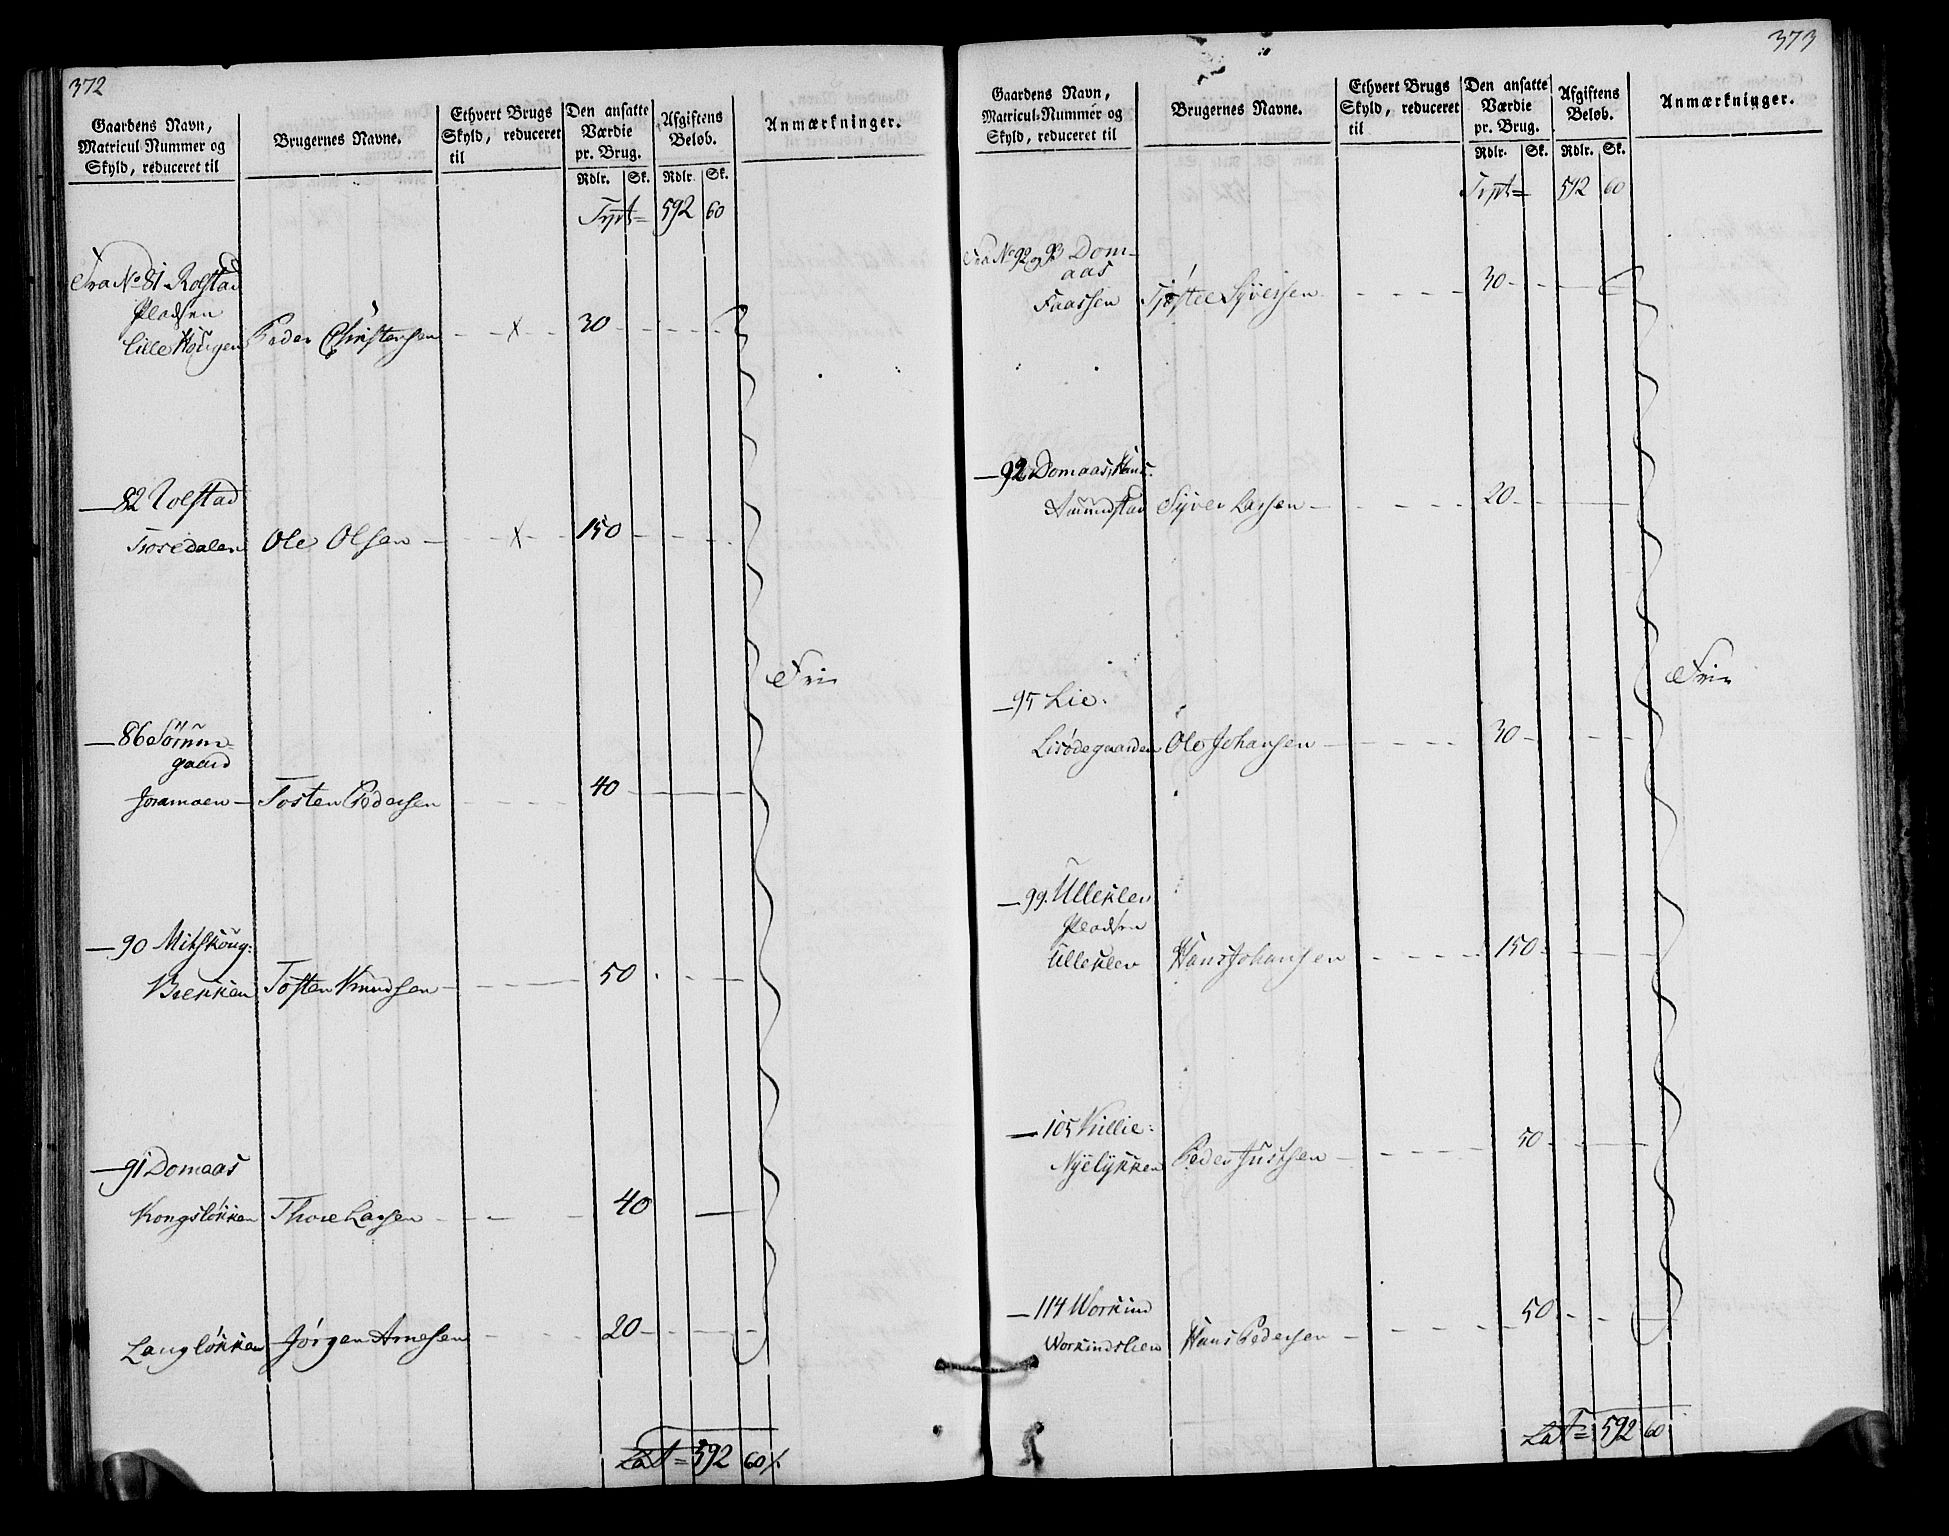 372
Gaardens Navn,
Matricul-Nummer og
Skyld, reduceret til
Brugernes Navne.
Ethvert Brugs
Skyld, reduceret
til
Den ansatte
Værdie
pr. Brug.
Rdlr. Sk.
Afgiftens
Beløb.
Rdlr. Sk.
Anmærkninger.
Trpt= 592 60
Fra No 81 Rolstad
Pladsen
Lille Hougen Peder Christensen - x - 30
- 82 Rolstad
Trosedalen Ole Olsen - x - 150
Frie
- 86 Sørum-
gaard
Joramoen - Tosten Pedersen 40
- 90 Mitskoug:
Brekken Tosten Knudsen 50
- 91 Domaas
Kongsløkken Thore Larsen 40
Langløkken Jørgen Arnesen 20
Lat= 592 60
373
Gaardens Navn,
Matricul-Nummer og
Skyld, reduceret til
Brugernes Navne.
Ethvert Brugs
Skyld, reduceret
til
Den ansatte
Værdie
pr. Brug.
Rdlr. Sk.
Afgiftens
Beløb.
Rdlr. Sk.
Anmærkninger.
Trpt= 592 60
Fra No 92 og 93 Dom-
aas
Faassen Tjøstel Syversen 30
- 92 Domaas,
Amundstad Syver Larsen 20
Frie
- 95 Lie:
Lisødegaarden Ole Johansen 30
- 99. Ulleklev
Pladsen
Ulleklev Hans Johansen 150
- 105 Killie:
Nyeløkken Peder Justsen 50
- 114 Workind
Workindslien Hans Pedersen 50
Lat= 592 60